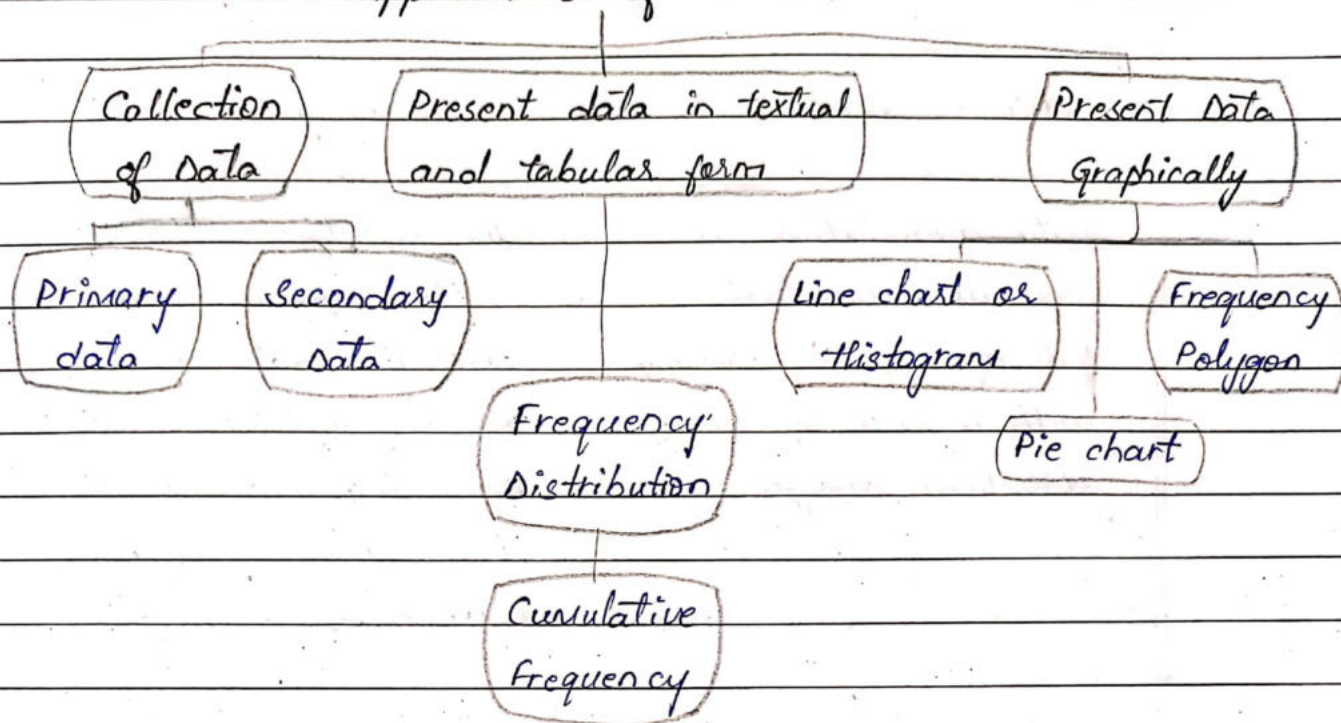 Collection
of Data
Present data in textual
and tabular form
Present Data
Graphically
Primary
data
Secondary
Data
Line chart or
Histogram
Frequency
Polygon
Pie chart
Frequency
Distribution
Cumulative
frequency